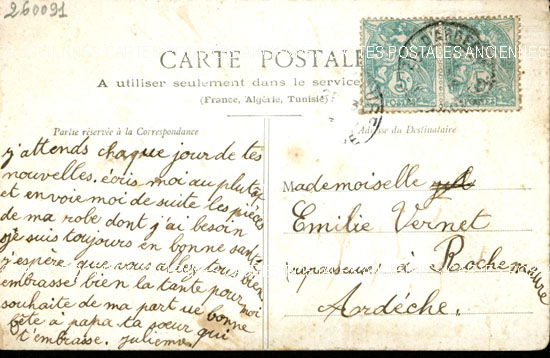 260091
CARTE POSTALE
A utiliser seulement dans le service
(France, Algérie, Tunisie)
Partie réservée à la Correspondance
Adresse du Destinataire
j'attends chaque jour de tes
nouvelles. écris moi au plutot
et envoie moi de suite les pièces
de ma robe dont j'ai besoin
je suis toujours en bonne santé
j'espère que vous allez tous bien
embrasse bien la tante pour moi
souhaite de ma part une bonne
fête à papa. ta soeur qui
t'embrasse. julienne
Mademoiselle
Emilie Vernet
repasseuse à Rochemaure
Ardèche.
5
POSTES
5
POSTES
LES POSTALES ANCIENNES